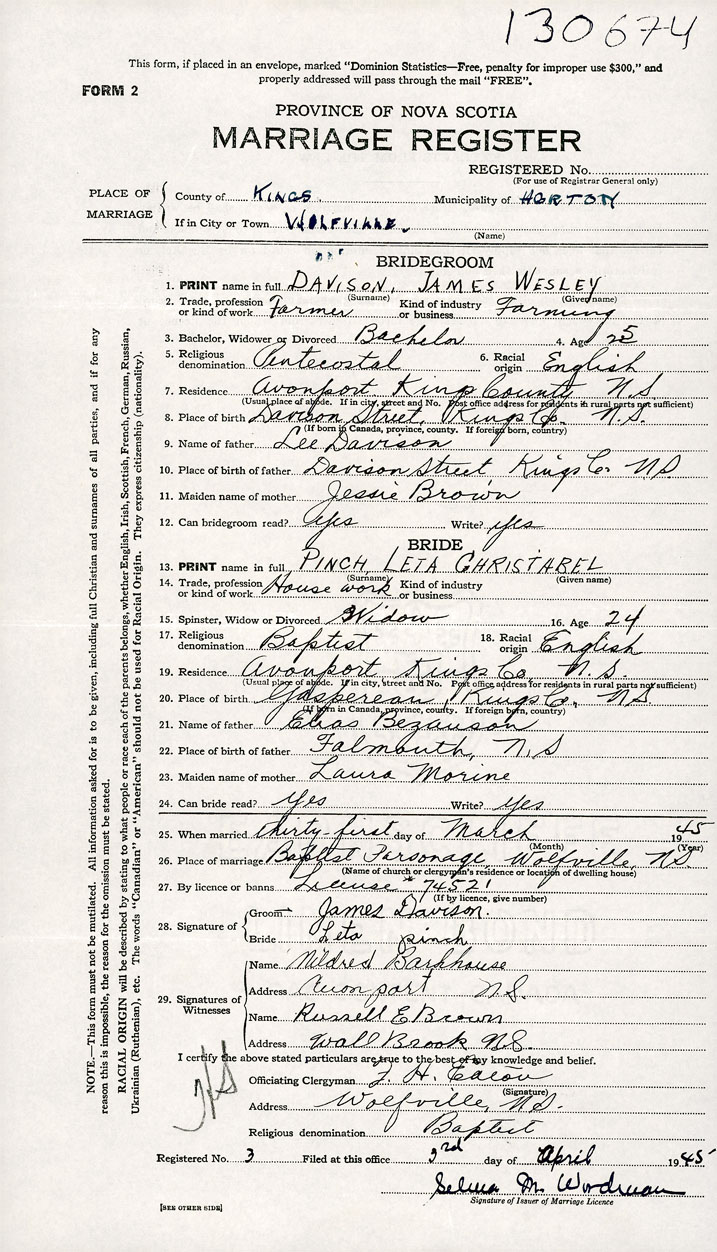 130674
This form, if placed in an envelope, marked "Dominion Statistics—Free, penalty for improper use $300," and
properly addressed will pass through the mail "FREE".
FORM 2
PROVINCE OF NOVA SCOTIA
MARRIAGE REGISTER
REGISTERED No.
(For use of Registrar General only)
PLACE OF MARRIAGE
County of KINGS Municipality of HORTON
If in City or Town WOLFVILLE
(Name)
BRIDEGROOM
1. PRINT name in full DAVISON, JAMES WESLEY
(Surname) (Given name)
2. Trade, profession or kind of work Farmer Kind of industry or business Farming
3. Bachelor, Widower or Divorced Bachelor 4. Age 25
5. Religious denomination Pentecostal 6. Racial origin English
7. Residence Avonport Kings County N S
(Usual place of abode. If in city, street and No. Post office address for residents in rural parts not sufficient)
8. Place of birth Davison Street, Kings Co. N.S.
(If born in Canada, province, county. If foreign born, country)
9. Name of father Lee Davison
10. Place of birth of father Davison Street Kings Co. NS
11. Maiden name of mother Jessie Brown
12. Can bridegroom read? Yes Write? yes
BRIDE
13. PRINT name in full PINCH, LETA CHRISTABEL
(Surname) (Given name)
14. Trade, profession or kind of work House work Kind of industry or business
15. Spinster, Widow or Divorced Widow 16. Age 24
17. Religious denomination Baptist 18. Racial origin English
19. Residence Avonport Kings Co, N.S.
(Usual place of abode. If in city, street and No. Post office address for residents in rural parts not sufficient)
20. Place of birth Gaspereau, Kings Co, NS
(If born in Canada, province, county. If foreign born, country)
21. Name of father Elias Bezanson
22. Place of birth of father Falmouth, N.S
23. Maiden name of mother Laura Morine
24. Can bride read? Yes Write? yes
25. When married thirty-first day of March 1945
(Month) (Year)
26. Place of marriage Baptist Parsonage, Wolfville, NS
(Name of church or clergyman's residence or location of dwelling house)
27. By licence or banns License # 74521
(If by licence, give number)
28. Signature of
Groom James Davison.
Bride Leta pinch
29. Signatures of Witnesses
Name Mildred Barkhouse
Address Avonport NS.
Name Russell E Brown
Address Wall Brook NS.
I certify the above stated particulars are true to the best of my knowledge and belief.
Officiating Clergyman F. H. Eaton
(Signature)
Address Wolfville, NS.
Religious denomination Baptist
Registered No. 3 Filed at this office 3rd day of April 1945
Selma M. Wordman
Signature of Issuer of Marriage Licence
[SEE OTHER SIDE]
NOTE.—This form must not be mutilated. All information asked for is to be given, including full Christian and surnames of all parties, and if for any
reason this is impossible, the reason for the omission must be stated.
RACIAL ORIGIN will be described by stating to what people or race each of the parents belongs, whether English, Irish, Scottish, French, German, Russian,
Ukrainian (Ruthenian), etc. The words "Canadian" or "American" should not be used for Racial Origin. They express citizenship (nationality).